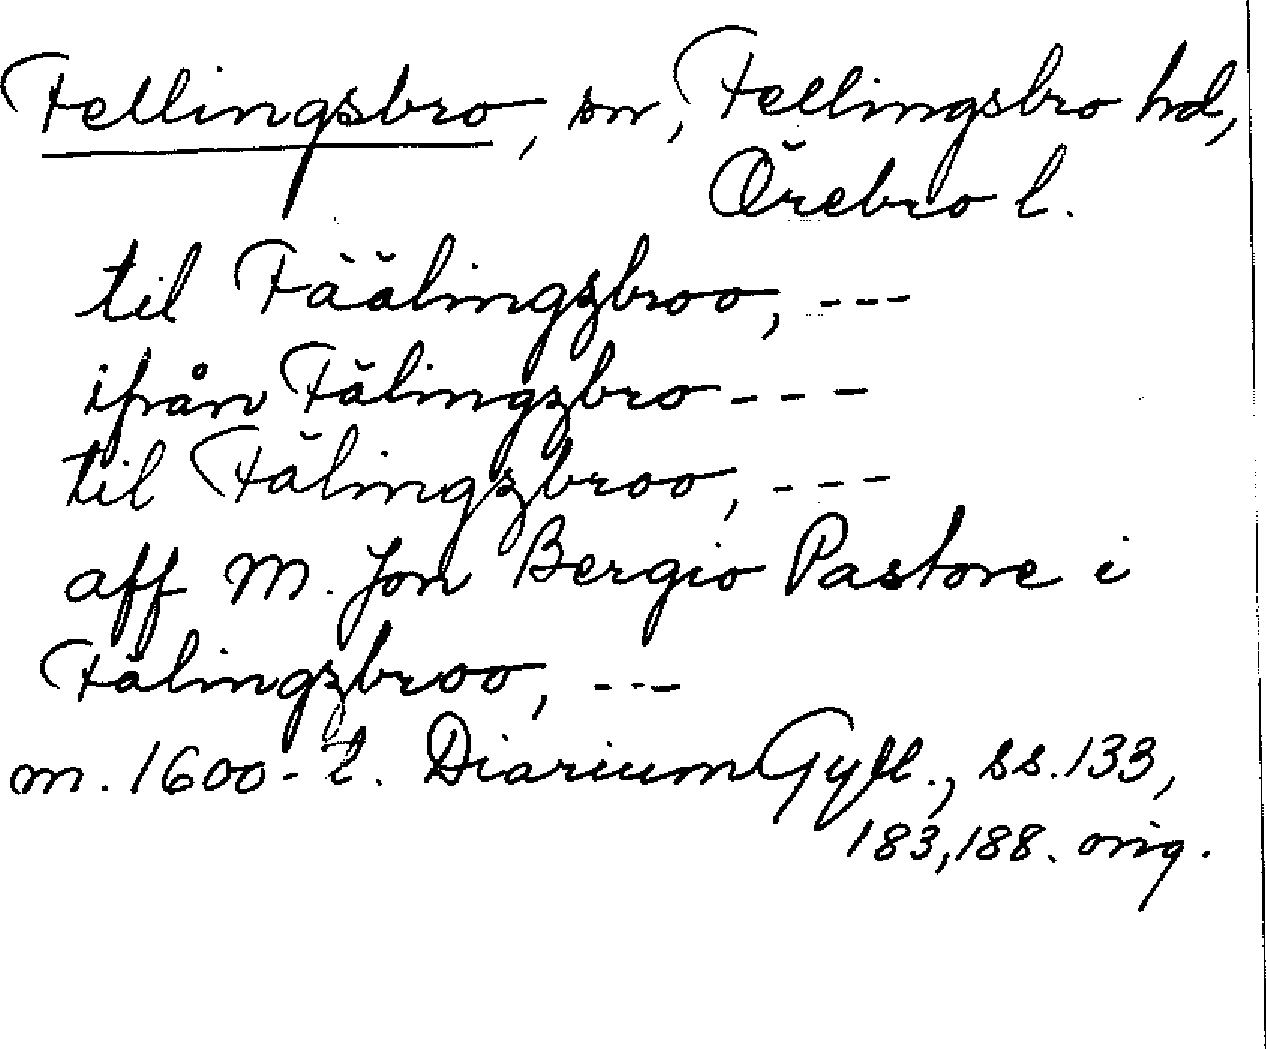 Fellingsbro, sn, Fellingsbro hd,
Örebro l.
til Fäälingzbroo, ---
ifrån Fälingzbro ---
til Fälingzbroo, ---
aff M. Jon Bergio Pastore i
Fälingzbroo, ---
m. 1600-t. Diarium Gyll., ss. 133,
183, 188. orig.